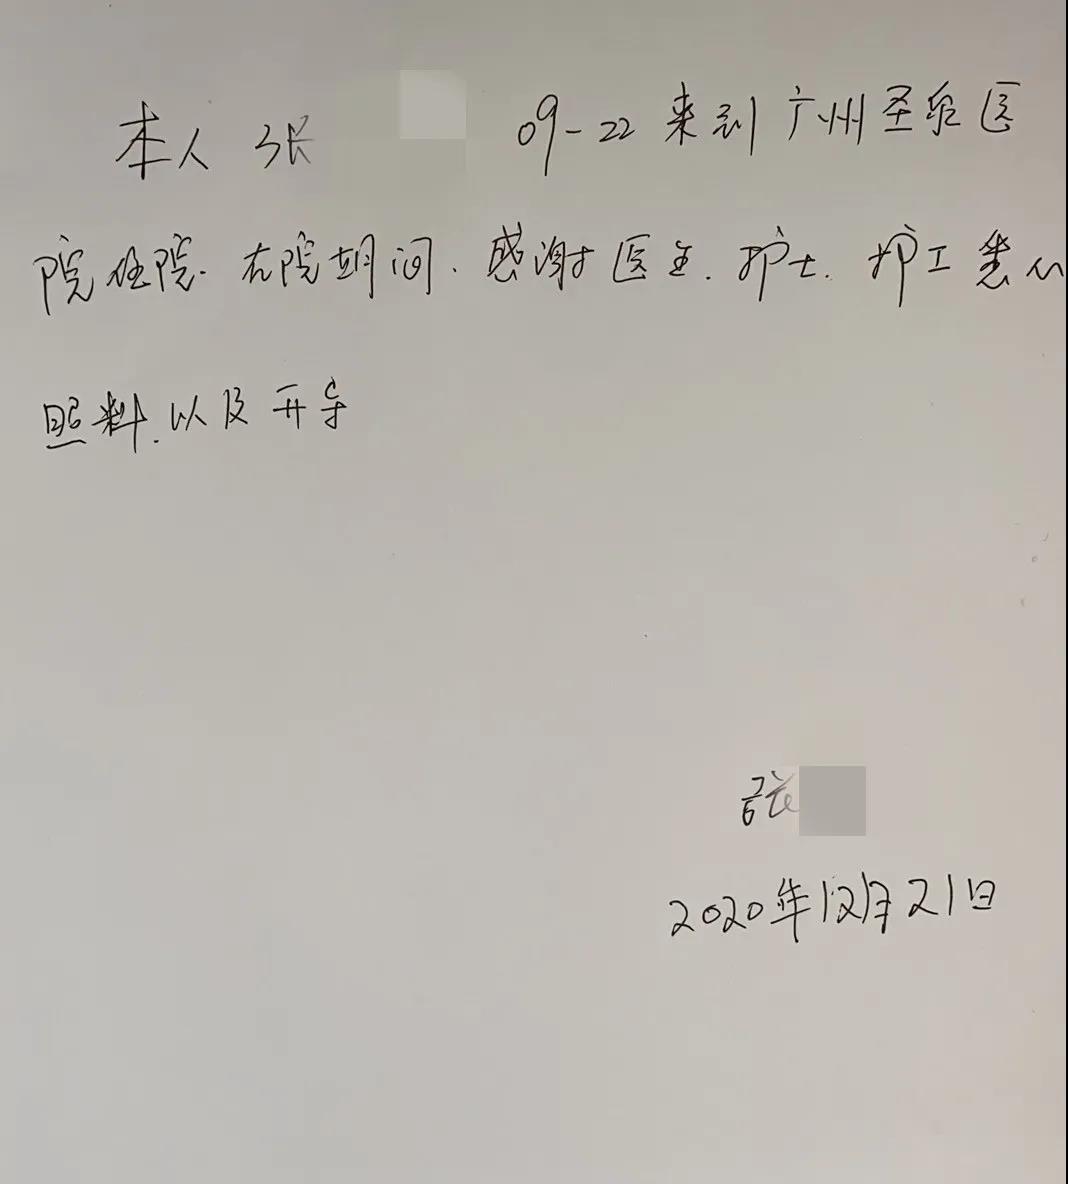 本人张 09-22 来到广州圣泉医
院住院.在院期间.感谢医生.护士.护工悉心
照料.以及开导
张
2020年12月21日